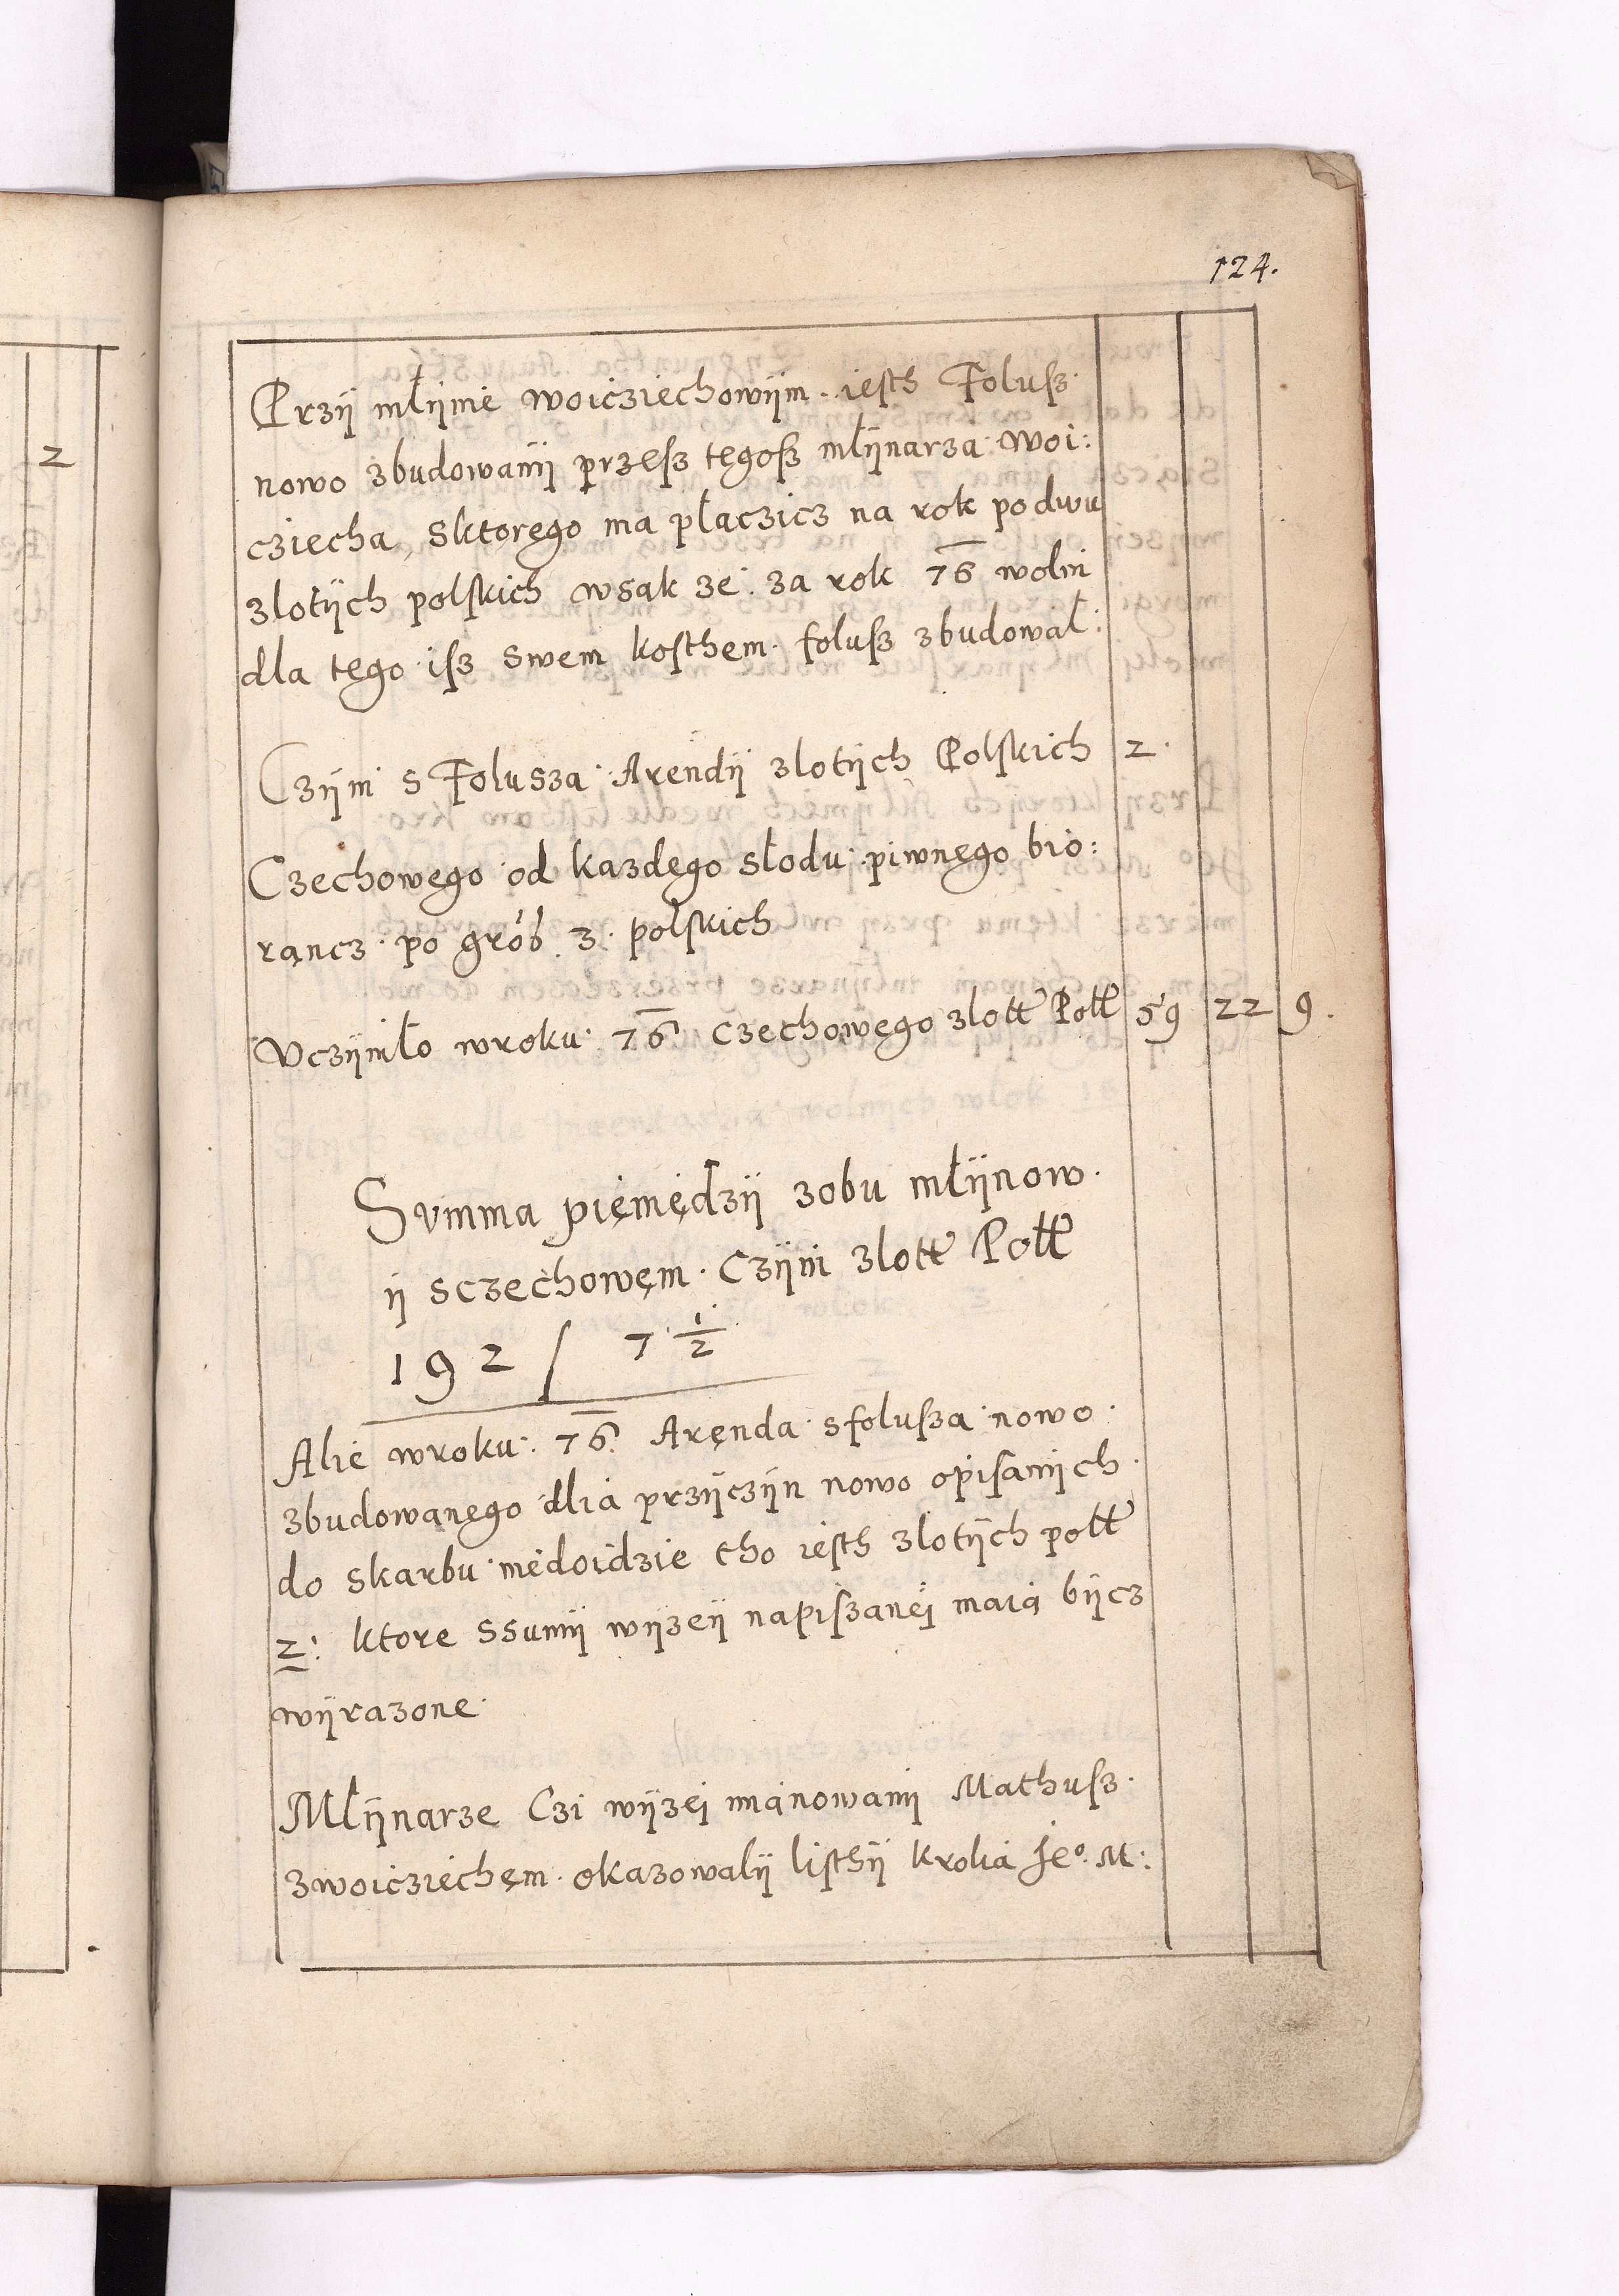 2
124.
Przÿ mlÿnie woicziechowÿm. iesth Folusz.
nowo zbudowanÿ przesz tęgosz młÿnarza Woi:
cziecha, sktoręgo ma płaczicz na rok podwu
zlotÿch polskich wsak ze za rok 76 wolni
dla tęgo isz swem kosthem. folusz zbudował:
Czÿni s Folusza Arendÿ zlotÿch Polskich 2.
Czechowęgo od kazdęgo słodu piwnęgo bio:
rącz. po groß. 3. polskich
Vczÿniło wroku 76 Czechowęgo zlott Poll 59 22 9.
Summa pięniędzÿ zobu młÿnow.
ÿ sczechowęm. Czÿni zlott Poll
192 / 7 1/2
Alie wroku. 76. Aręnda sfolusza nowo.
zbudowanęgo dlia przÿczÿn nowo opisanÿch.
do skarbu niedoidzie tho iesth zlotÿch poll
2: ktore ssumÿ wÿzeÿ napiszanėj maią bÿcz
wÿrazone.
Młÿnarze Czi wÿzėj mianowanÿ Mathusz.
zwoicziechęm. okazowalÿ listhÿ krolia Je°. M: